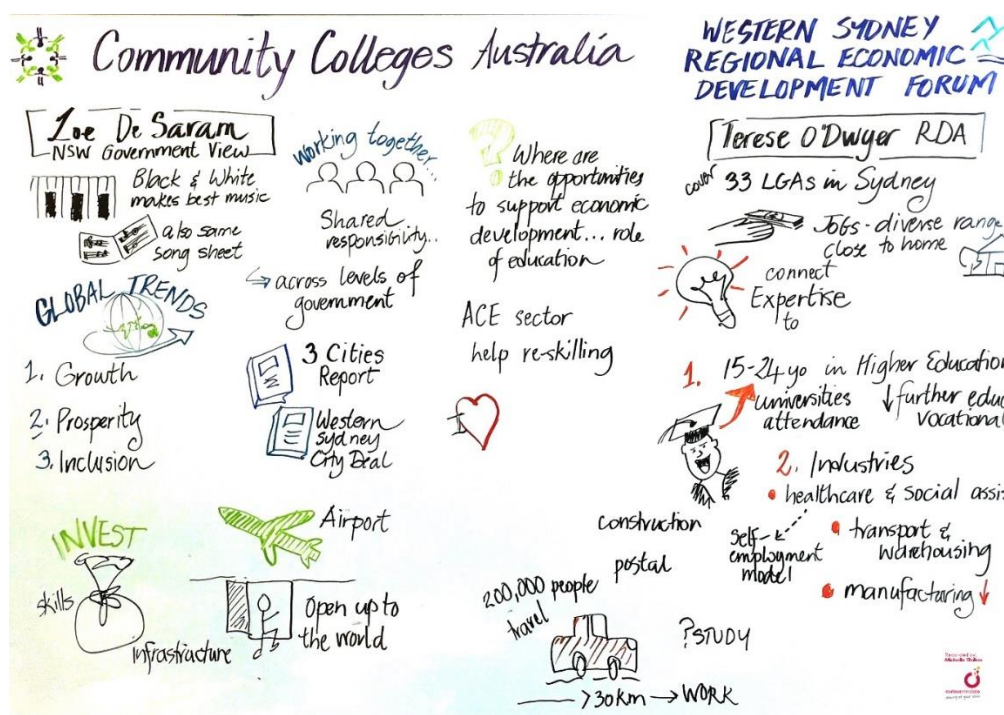 Community Colleges Australia
WESTERN SYDNEY
REGIONAL ECONOMIC
DEVELOPMENT FORUM
Zoe De Saram
NSW Government View
Black & White
makes best music
also same
song sheet
GLOBAL TRENDS
1. Growth
2. Prosperity
3. Inclusion
INVEST
skills
infrastructure
working together...
Shared
responsibility..
across levels of
government
3 Cities
Report
Western
Sydney
City Deal
Airport
Open up to
the world
?
Where are
the opportunities
to support economic
development... role
of education
ACE sector
help re-skilling
I
Terese O'Dwyer RDA
cover 33 LGAs in Sydney
Jobs - diverse range
close to home
connect
Expertise
to
1. 15-24 yo in Higher Education
universities
attendance
further educ
vocational
2. Industries
healthcare & social assis
transport &
warehousing
manufacturing
self-
employment
model
construction
postal
200,000 people
travel
>30km → WORK
?STUDY